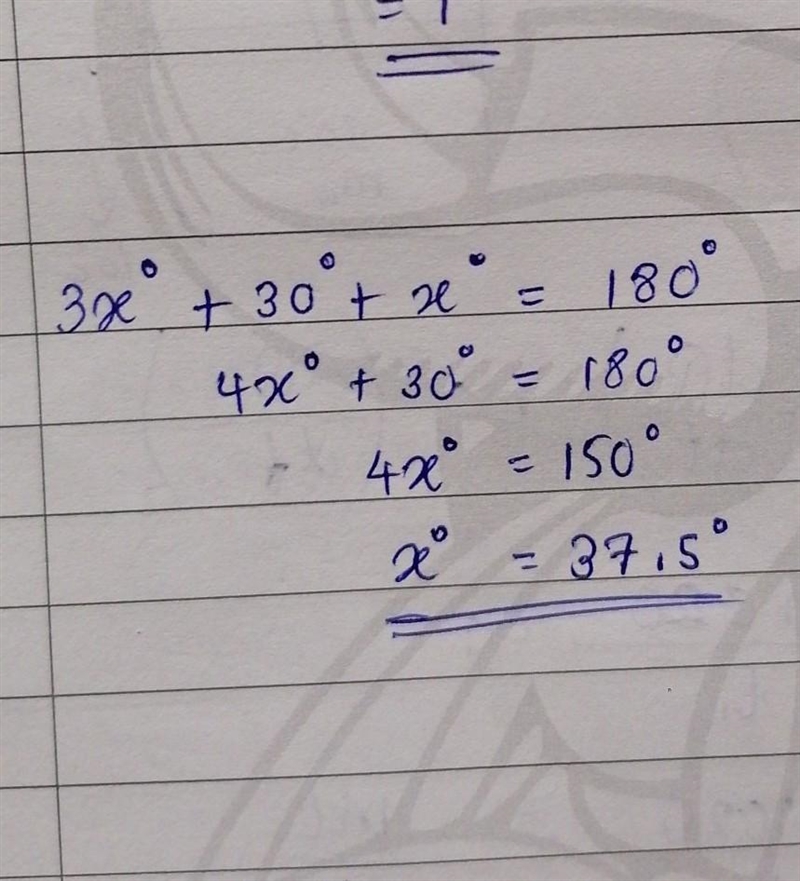 3x° + 30° + x° = 180°
4x° + 30° = 180°
4x° = 150°
x° = 37.5°